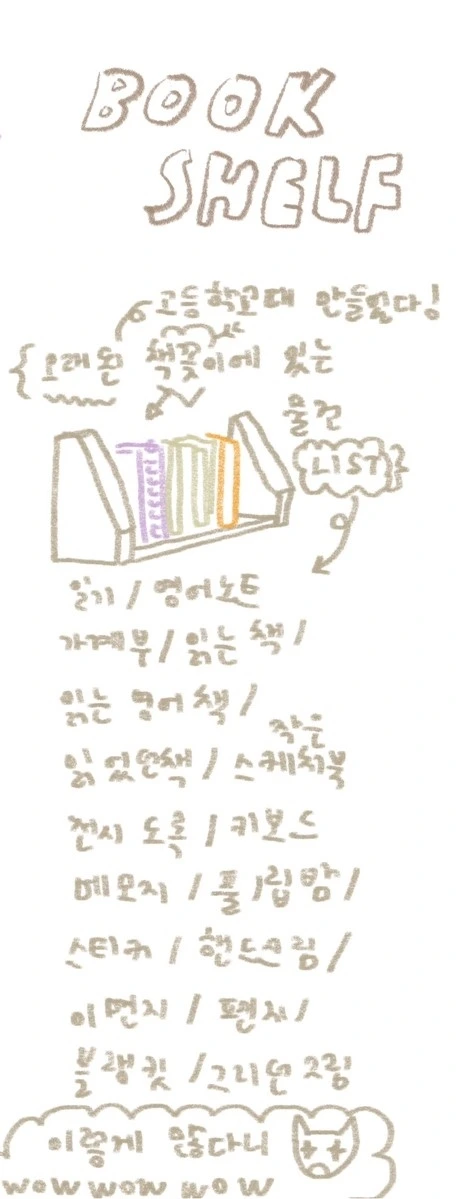 BOOK
SHELF
고등학교때 만들었다!
{ 오래된 책꽂이에 있는
물건
LIST }
일기 / 영어노트
가계부 / 읽는 책 /
읽는 영어 책 /
작은
읽었던책 / 스케치북
전시 도록 / 키보드
메모지 / 풀 / 립밤 /
스티커 / 핸드크림 /
이면지 / 편지 /
블랭킷 / 그리던 그림
이렇게 많다니
wow wow wow